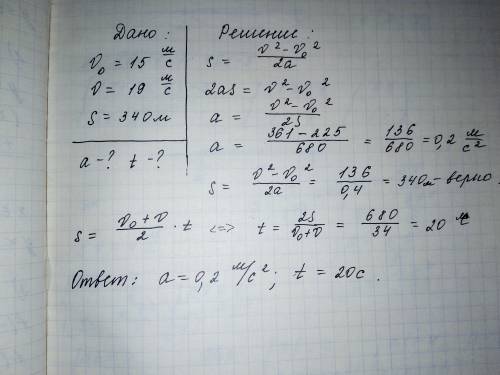 Дано:
v₀ = 15 м/с
v = 19 м/с
s = 340 м
a - ? t - ?
Решение:
s = (v² - v₀²)/2a
2as = v² - v₀²
a = (v² - v₀²)/2s
a = (361 - 225)/680 = 136/680 = 0,2 м/с²
s = (v² - v₀²)/2a = 136/0,4 = 340 м - верно.
s = (v₀ + v)/2 · t <=> t = 2s/(v₀ + v) = 680/34 = 20
Ответ: a = 0,2 м/с²; t = 20 с.